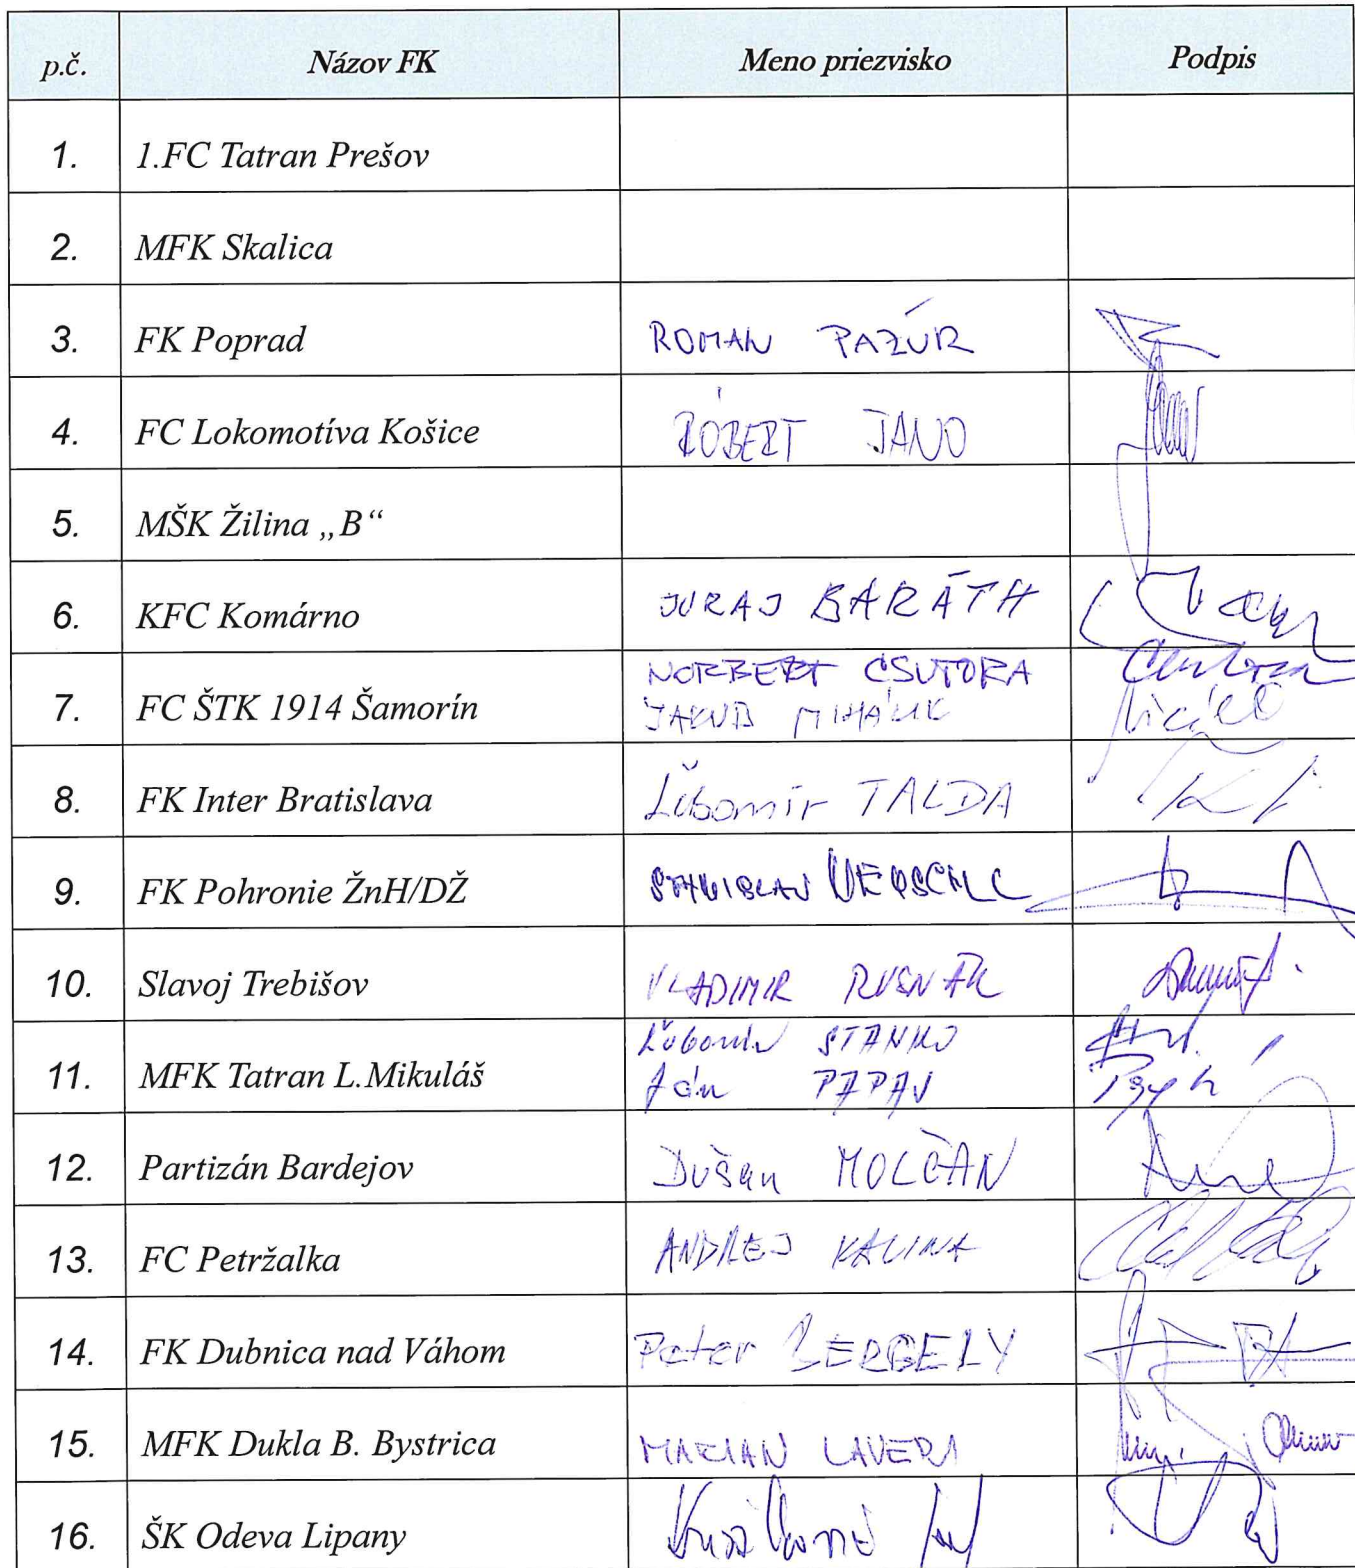 p.č. Názov FK Meno priezvisko Podpis
1. 1.FC Tatran Prešov
2. MFK Skalica
3. FK Poprad ROMAN PAZÚR
4. FC Lokomotíva Košice RÓBERT JANO
5. MŠK Žilina „B“
6. KFC Komárno JURAJ BARÁTH
NORBERT CSUTORA
7. FC ŠTK 1914 Šamorín
JAKUB MIHÁLIK
8. FK Inter Bratislava Ľubomír TALDA
9. FK Pohronie ŽnH/DŽ STANISLAV
10. Slavoj Trebišov VLADIMIR RUSNÁK
Ľubomír STANKO
11. MFK Tatran L.Mikuláš
Ján PAPAJ
12. Partizán Bardejov Dušan MOLČAN
13. FC Petržalka ANDREJ KALINA
14. FK Dubnica nad Váhom Peter GERGELY
15. MFK Dukla B. Bystrica MARIAN
16. ŠK Odeva Lipany